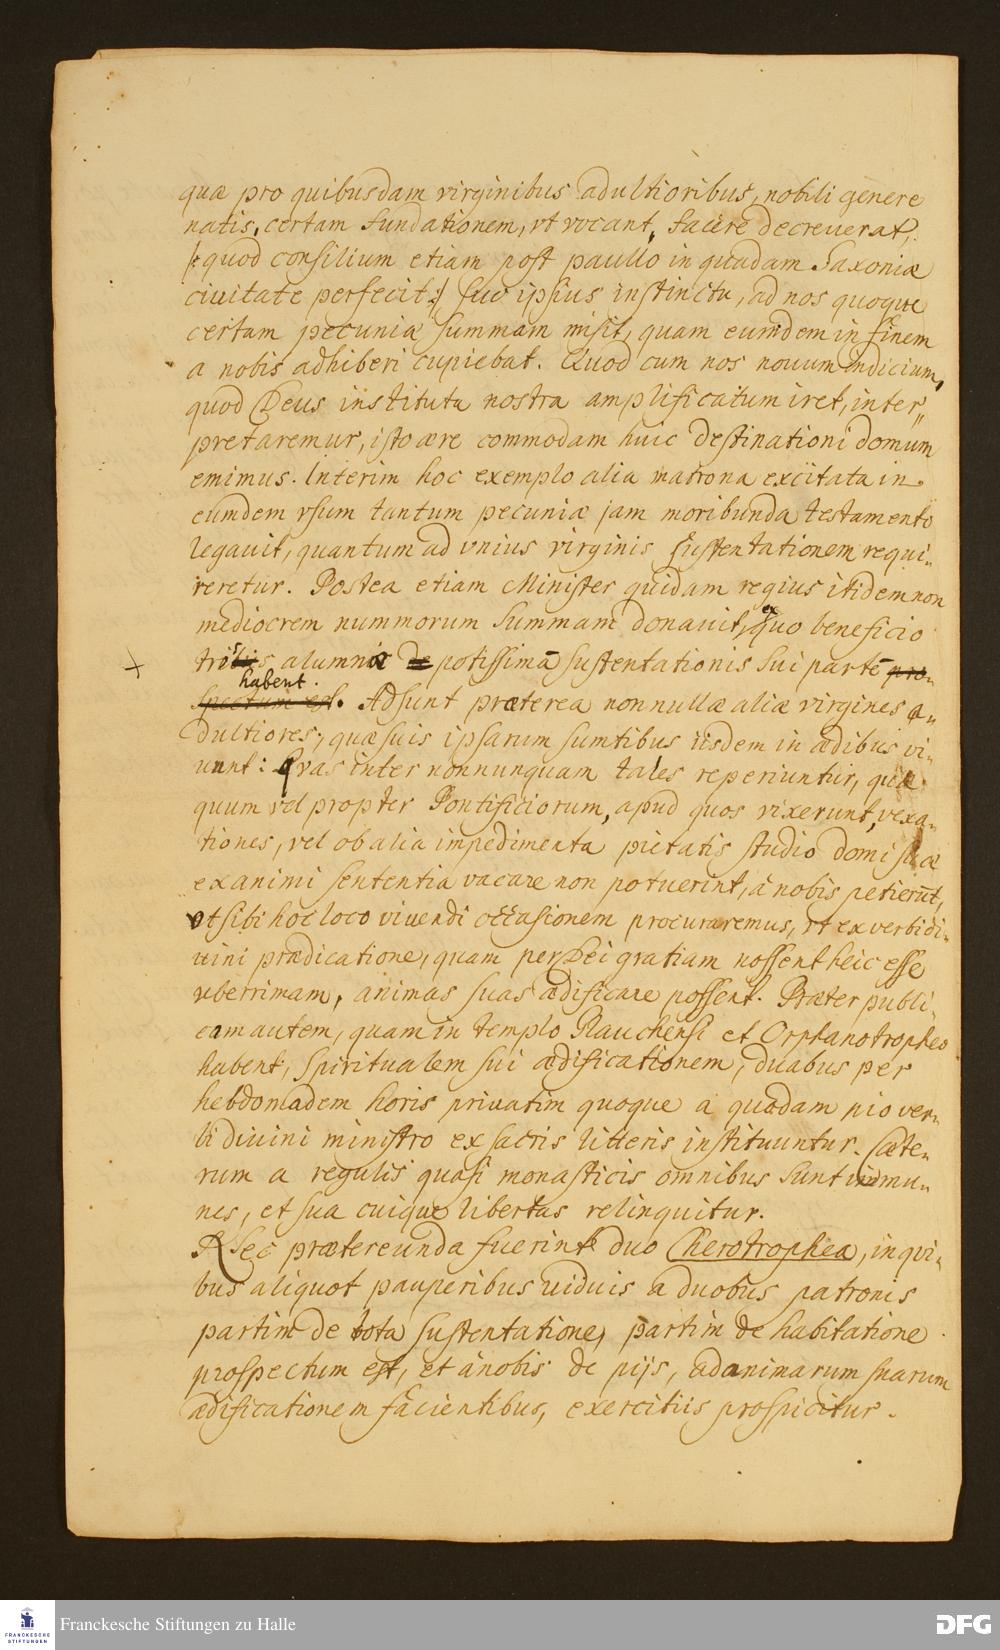 quæ pro quibusdam virginibus adultioribus, nobili genere
natis, certam fundationem, vt vocant, facere decreuerat,
(:quod consilium etiam post paullo in quadam Saxoniæ
ciuitate perfecit:) suo ipsius instinctu, ad nos quoque
certam pecuniæ summam misit, quam eumdem in finem
a nobis adhiberi cupiebat. Quod cum nos nouum indicium,
quod Deus instituta nostra amplificatum iret, inter„
pretaremur, isto ære commodam huic destinationi domum
emimus. Interim hoc exemplo alia matrona excitata in
eumdem vsum tantum pecuniæ jam moribunda testamento
legauit, quantum ad vnius virginis sustentationem requi„
reretur. Postea etiam Minister quidam regius itidem non
mediocrem nummorum summam donauit, ex quo beneficio
alumnæ de potissimã sustentationis sui partẽ pro„
habent.
spectum est. Adsunt præterea nonnullæ aliæ virgines a„
dultiores, quæ suis ipsarum sumtibus iisdem in ædibus vi„
uunt: Qvas inter nonnunquam tales reperiuntur, quæ
quum vel propter Pontificiorum, apud quos vixerunt, vexa„
tiones, vel ob alia impedimenta pietatis studio domi suæ
ex animi sententia vacare non potuerint, a nobis petierũt,
vt sibi hoc loco viuendi occasionem procuraremus, vt ex verbi di„
uini prædicatione, quam per Dei gratiam nossent heic esse
vberrimam, animas suas ædificare possent. Præter publi„
cam autem, quam in templo Glauchensi et Orphanotropheo
habent, spiritualem sui ædificationem, duabus per
hebdomadem horis priuatim quoque a quodam pio ver„
bi diuini ministro ex sacris litteris instituuntur. Cæte„
rum a regulis quasi monasticis omnibus sunt immu„
nes, et sua cuique libertas relinquitur.
Nec prætereunda fuerint duo Cherotrophea, in qvi„
bus aliquot pauperibus viduis a duobus patronis
partim de tota sustentatione, partim de habitatione
prospectum est, et a nobis de pijs, ad animarum suarum
ædificationem facientibus, exercitiis prospicitur.
Franckesche Stiftungen zu Halle
FRANCKESCHE
STIFTUNGEN
DFG